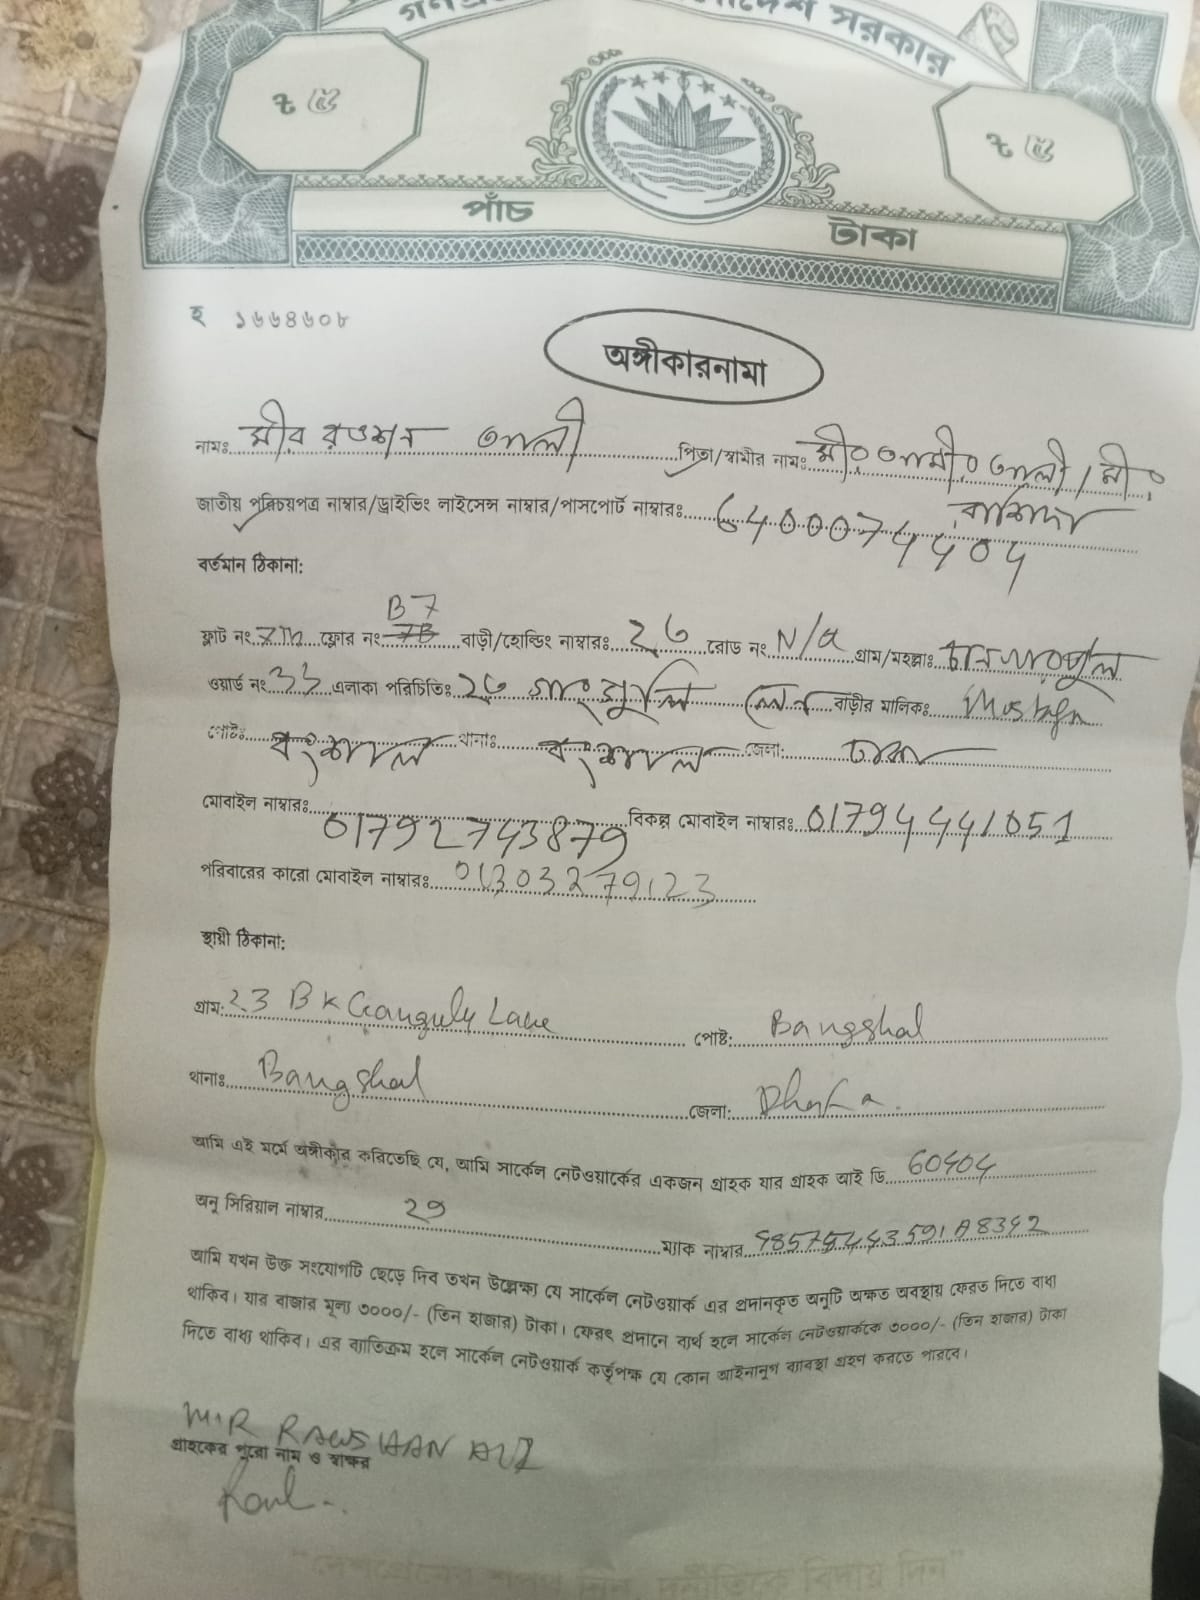 সরকার
৳ ৫
৳ ৫
পাঁচ টাকা
হ ১৬৬৪৬০৮
অঙ্গীকারনামা
নামঃ মীর রওশন আলী পিতা/স্বামীর নামঃ মীর আমীর আলী / মীর
জাতীয় পরিচয়পত্র নাম্বার/ড্রাইভিং লাইসেন্স নাম্বার/পাসপোর্ট নাম্বারঃ 6400074404
বর্তমান ঠিকানা:
B7
ফ্লাট নং 7th ফ্লোর নং 7B বাড়ী/হোল্ডিং নাম্বারঃ 26 রোড নং N/a গ্রাম/মহল্লাঃ
ওয়ার্ড নং 33 এলাকা পরিচিতিঃ ২৬ গাংগুলি লেন বাড়ীর মালিকঃ Mostafa
পোষ্টঃ বংশাল থানাঃ বংশাল জেলা: ঢাকা
মোবাইল নাম্বারঃ 01792743879 বিকল্প মোবাইল নাম্বারঃ 01794441051
পরিবারের কারো মোবাইল নাম্বারঃ 01303279123
স্থায়ী ঠিকানা:
গ্রাম: 23 B K Ganguly Lane পোষ্ট: Bangshal
থানাঃ Bangshal জেলা: Dhaka.
আমি এই মর্মে অঙ্গীকার করিতেছি যে, আমি সার্কেল নেটওয়ার্কের একজন গ্রাহক যার গ্রাহক আই ডি 60404
অনু সিরিয়াল নাম্বার 29 ম্যাক নাম্বার
আমি যখন উক্ত সংযোগটি ছেড়ে দিব তখন উল্লেক্ষ্য যে সার্কেল নেটওয়ার্ক এর প্রদানকৃত অনুটি অক্ষত অবস্থায় ফেরত দিতে বাধ্য
থাকিব। যার বাজার মূল্য ৩০০০/- (তিন হাজার) টাকা। ফেরৎ প্রদানে ব্যর্থ হলে সার্কেল নেটওয়ার্ককে ৩০০০/- (তিন হাজার) টাকা
দিতে বাধ্য থাকিব। এর ব্যতিক্রম হলে সার্কেল নেটওয়ার্ক কর্তৃপক্ষ যে কোন আইনানুগ ব্যাবস্থা গ্রহণ করতে পারবে।
MIR RAWSHAN ALI
গ্রাহকের পুরো নাম ও স্বাক্ষর
"দেশপ্রেমের শপথ নিন, দুর্নীতিকে বিদায় দিন"